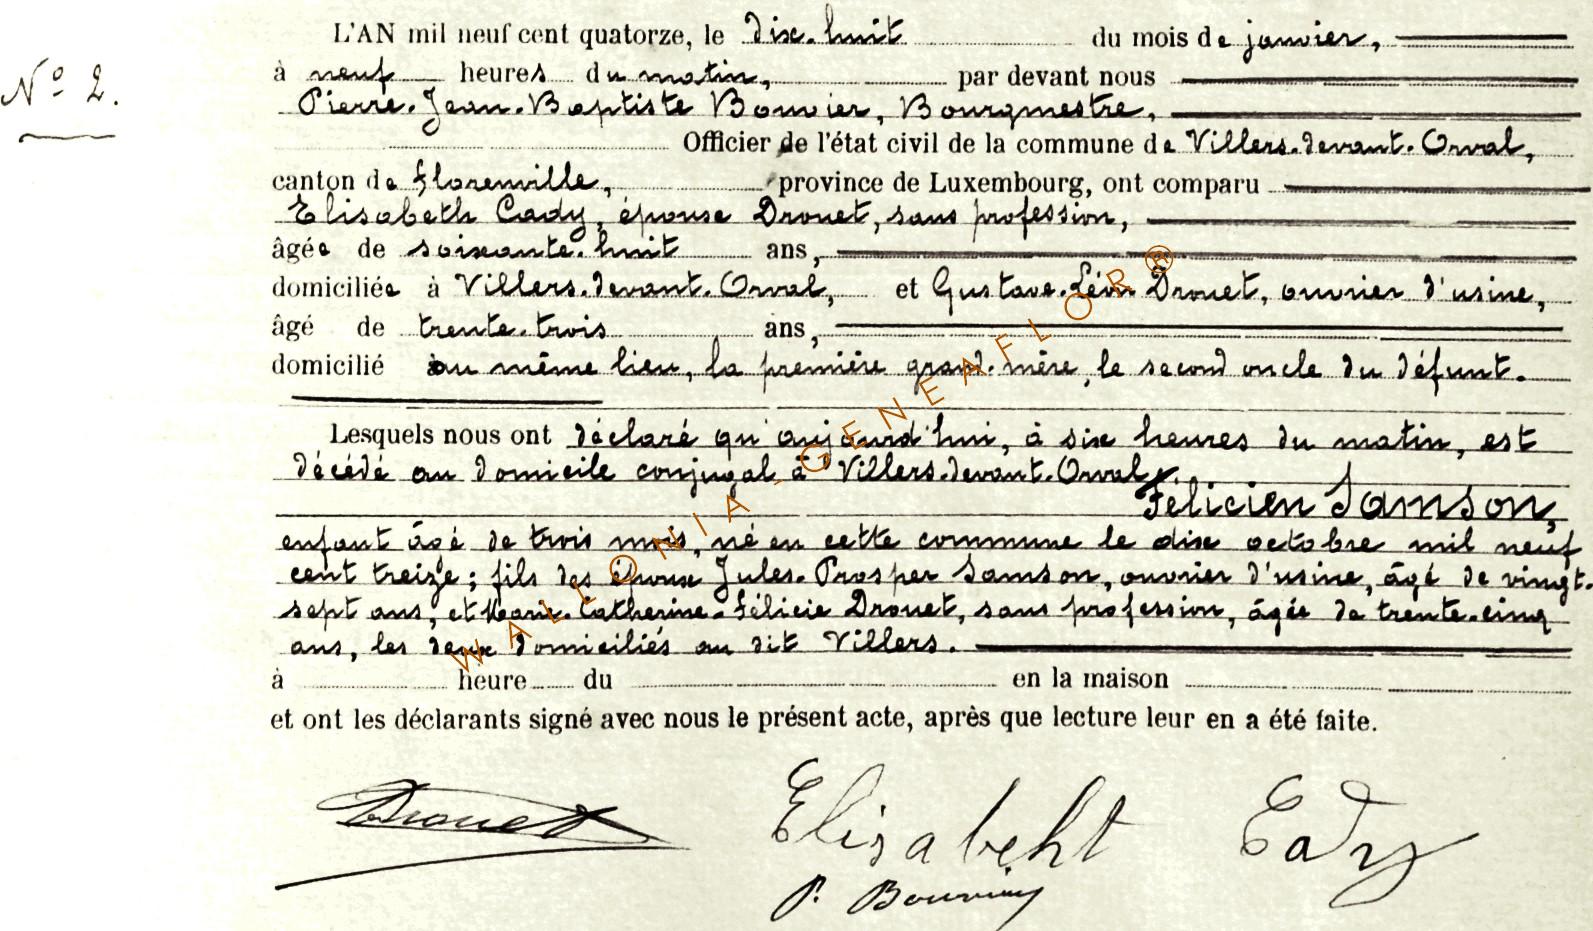 N° 2.
L'AN mil neuf cent quatorze, le dix-huit du mois de janvier,
à neuf heures du matin, par devant nous
Pierre-Jean-Baptiste Bouvier, Bourgmestre,
Officier de l'état civil de la commune de Villers-devant-Orval,
canton de Florenville, province de Luxembourg, ont comparu
Elisabeth Cady, épouse Drouet, sans profession,
âgée de soixante-huit ans,
domiciliée à Villers-devant-Orval, et Gustave-Léon Drouet, ouvrier d'usine,
âgé de trente-trois ans,
domicilié au même lieu, la première grand-mère, le second oncle du défunt.
Lesquels nous ont déclaré qu'aujourd'hui, à six heures du matin, est
décédé au domicile conjugal à Villers-devant-Orval,
Félicien Samson,
enfant âgé de trois mois, né en cette commune le dix octobre mil neuf
cent treize; fils des époux Jules-Prosper Samson, ouvrier d'usine, âgé de vingt-
sept ans, et Marie-Catherine-Félicie Drouet, sans profession, âgée de trente-cinq
ans, les deux domiciliés au dit Villers.
à heure du en la maison
et ont les déclarants signé avec nous le présent acte, après que lecture leur en a été faite.
Drouet Elisabeht Cady
P. Bouvier
WALLONIA-GENEAFLOR®